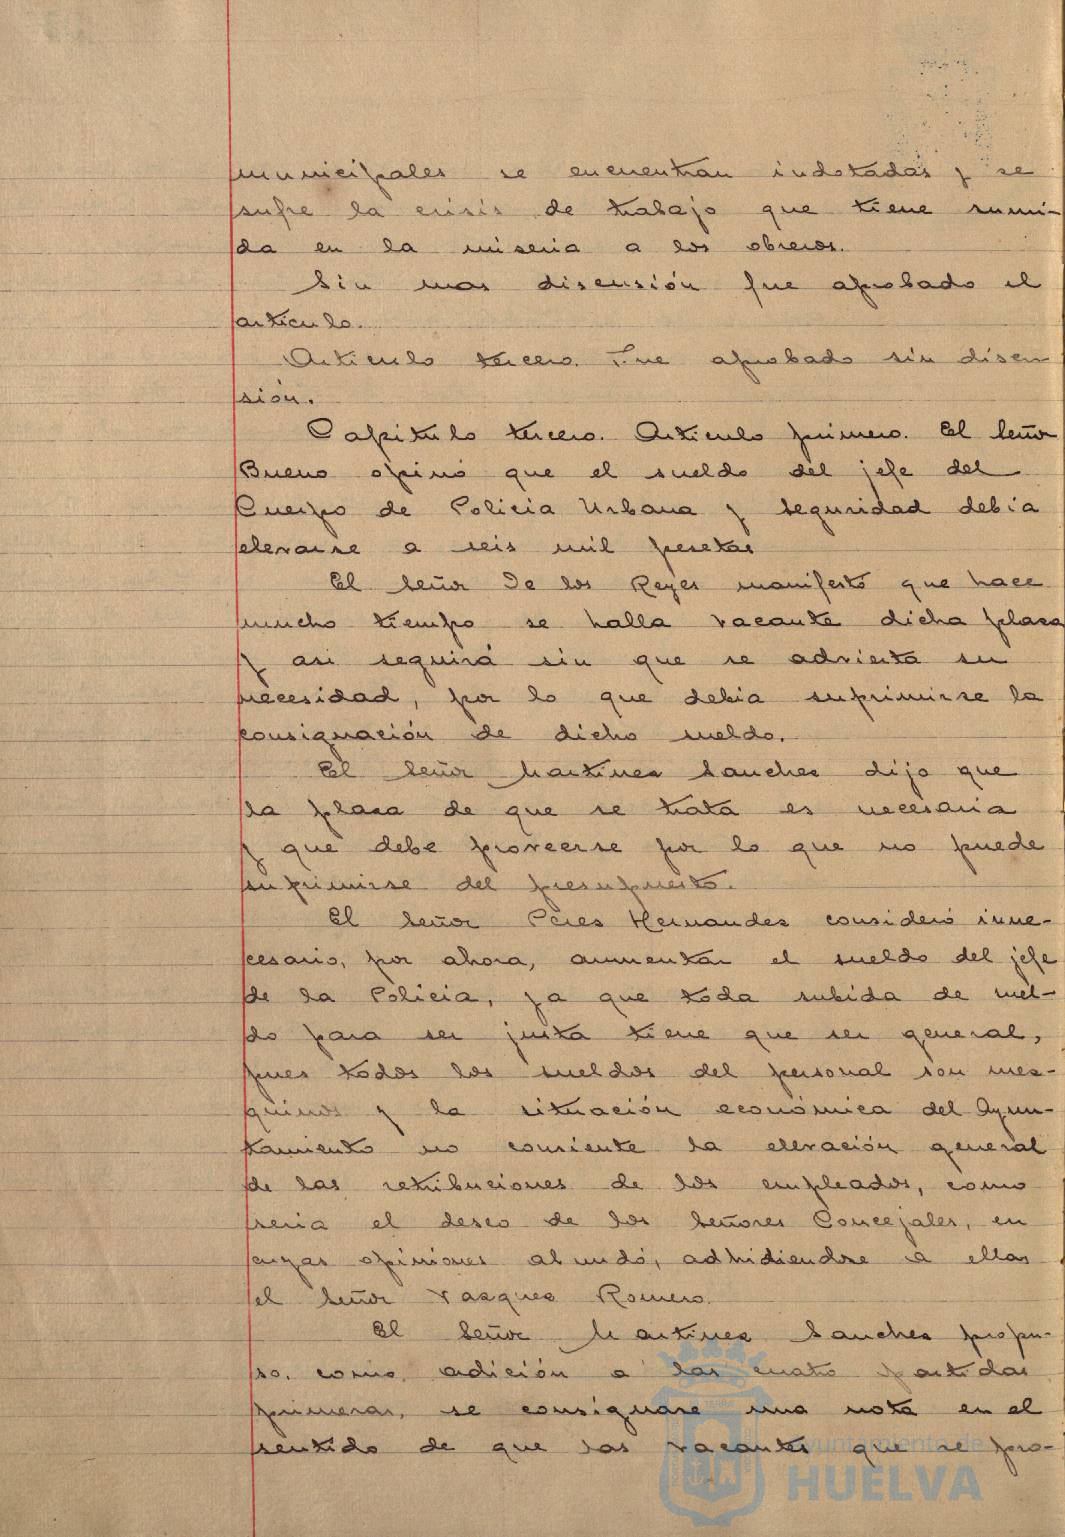 municipales se encuentran indotadas y se
sufre la crisis de trabajo que tiene sumi-
da en la miseria a los obreros.
Sin mas discusión fue aprobado el
artículo.
Artículo tercero. Fue aprobado sin discu
sión.
Capítulo tercero. Artículo primero. El Señor
Bueno opinó que el sueldo del jefe del
Cuerpo de Policia Urbana y seguridad debia
elevarse a seis mil pesetas
El Señor De los Reyes manifestó que hace
mucho tiempo se halla vacante dicha plaza
y asi seguirá sin que se advierta su
necesidad, por lo que debia suprimirse la
consignación de dicho sueldo.
El Señor Martinez Sanchez dijo que
la plaza de que se trata es necesaria
y que debe proveerse por lo que no puede
suprimirse del presupuesto.
El Señor Pérez Hernandez consideró inne-
cesario, por ahora, aumentar el sueldo del jefe
de la Policia, ya que toda subida de suel-
do para ser justa tiene que ser general,
pues todos los sueldos del personal son mez-
quinos y la situación económica del Ayun-
tamiento no consiente la elevación general
de las retribuciones de los empleados, como
seria el deseo de los Señores Concejales, en
cuyas opiniones abundó, adhidiendose a ellas
el Señor Vazquez Romero.
El Señor Martinez Sanchez propu-
so, como adición a las cuatro partidas
primeras, se consignase una nota en el
sentido de que las vacantes que se pro-
Ayuntamiento de
HUELVA